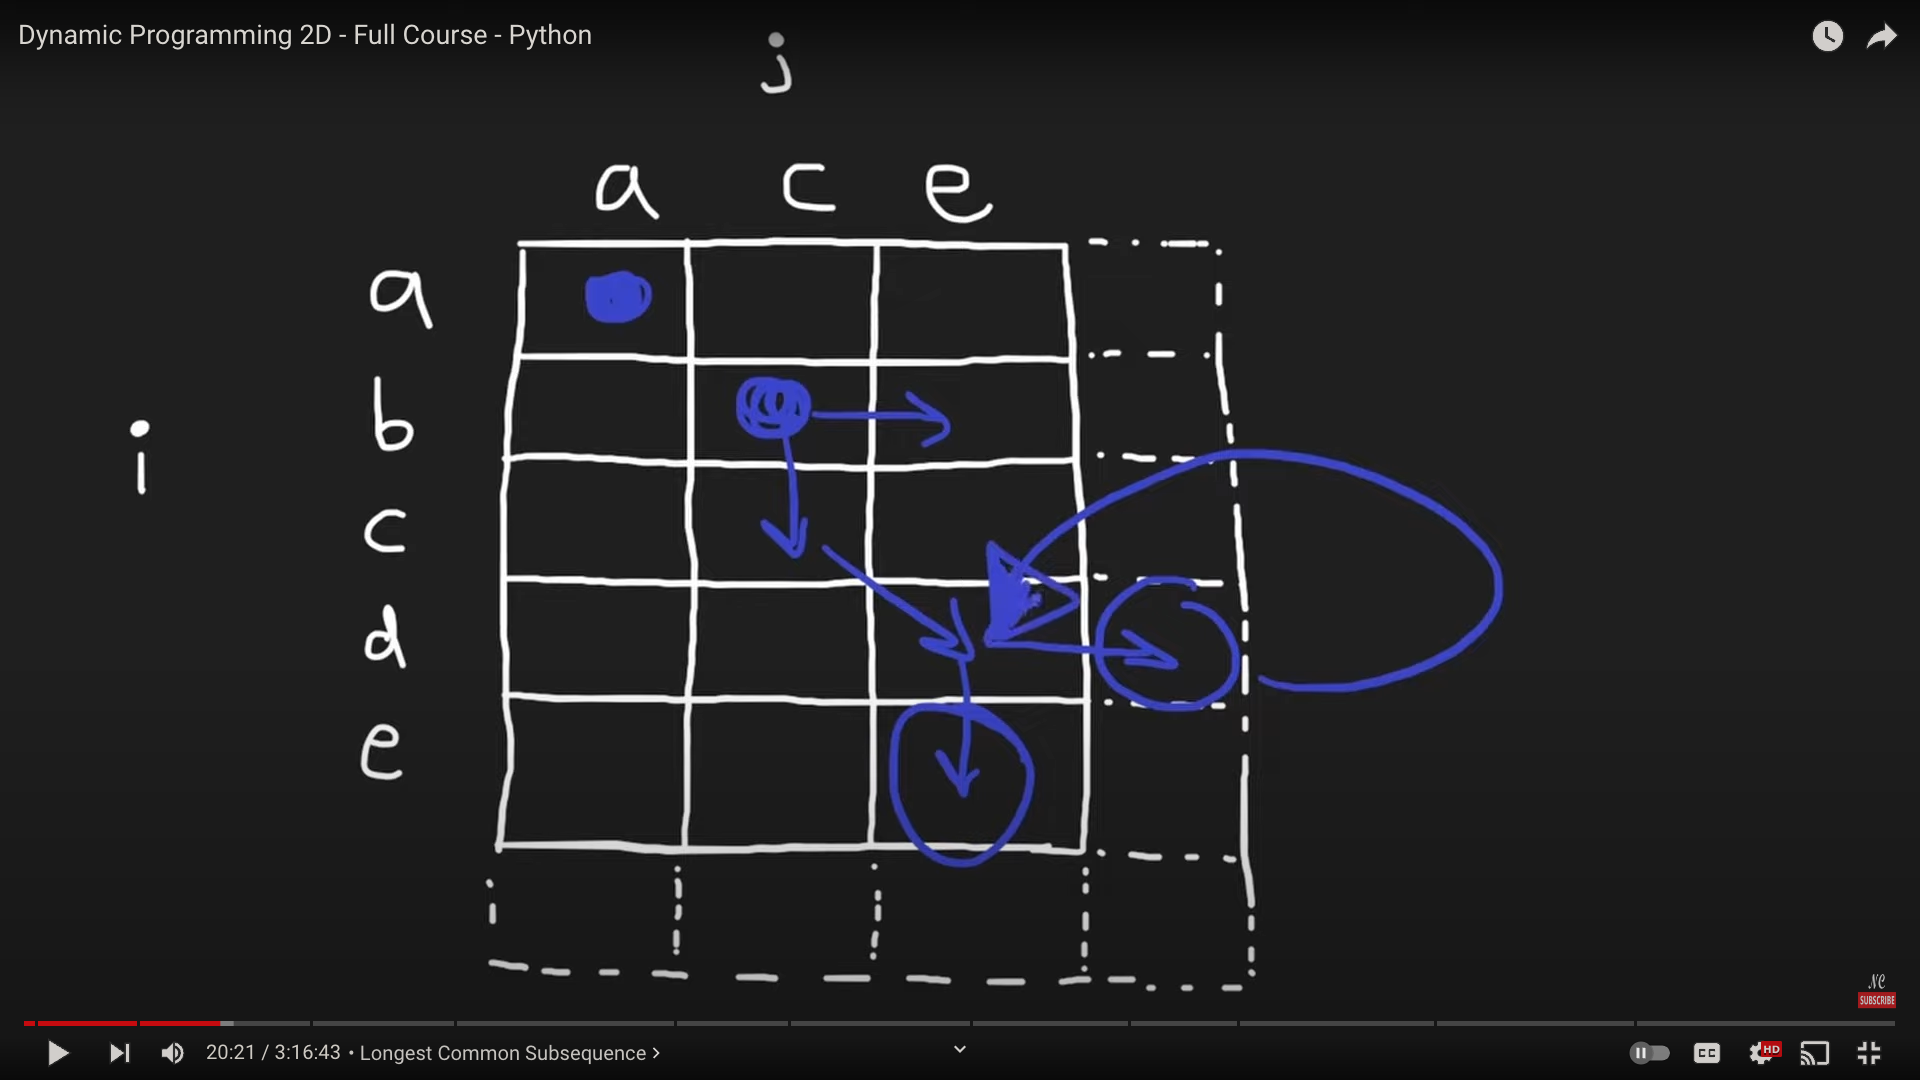 Dynamic Programming 2D - Full Course - Python
j
a c e
a
b
i
c
d
e
NC
SUBSCRIBE
20:21 / 3:16:43 • Longest Common Subsequence >
CC
HD